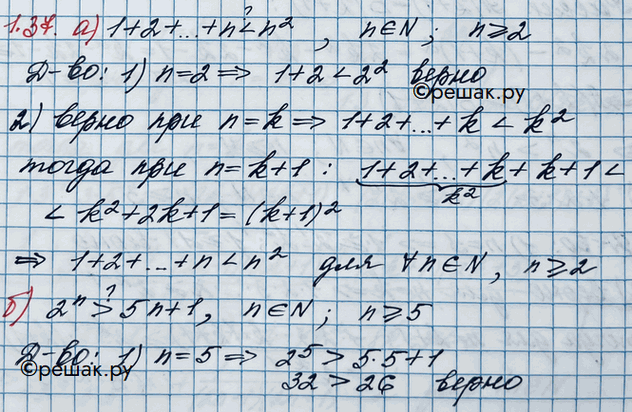 1.37. а) 1+2+...+n <? n², n∈N; n⩾2
Д-во: 1) n=2 ⇒ 1+2 < 2² верно
©решак.ру
2) верно при n=k ⇒ 1+2+...+k < k²
тогда при n=k+1: 1+2+...+k+k+1 <
k²
< k²+2k+1 = (k+1)²
⇒ 1+2+...+n < n² для ∀n∈N, n⩾2
б) 2ⁿ >? 5n+1, n∈N; n⩾5
Д-во: 1) n=5 ⇒ 2⁵ > 5·5+1
©решак.ру
32 > 26 верно